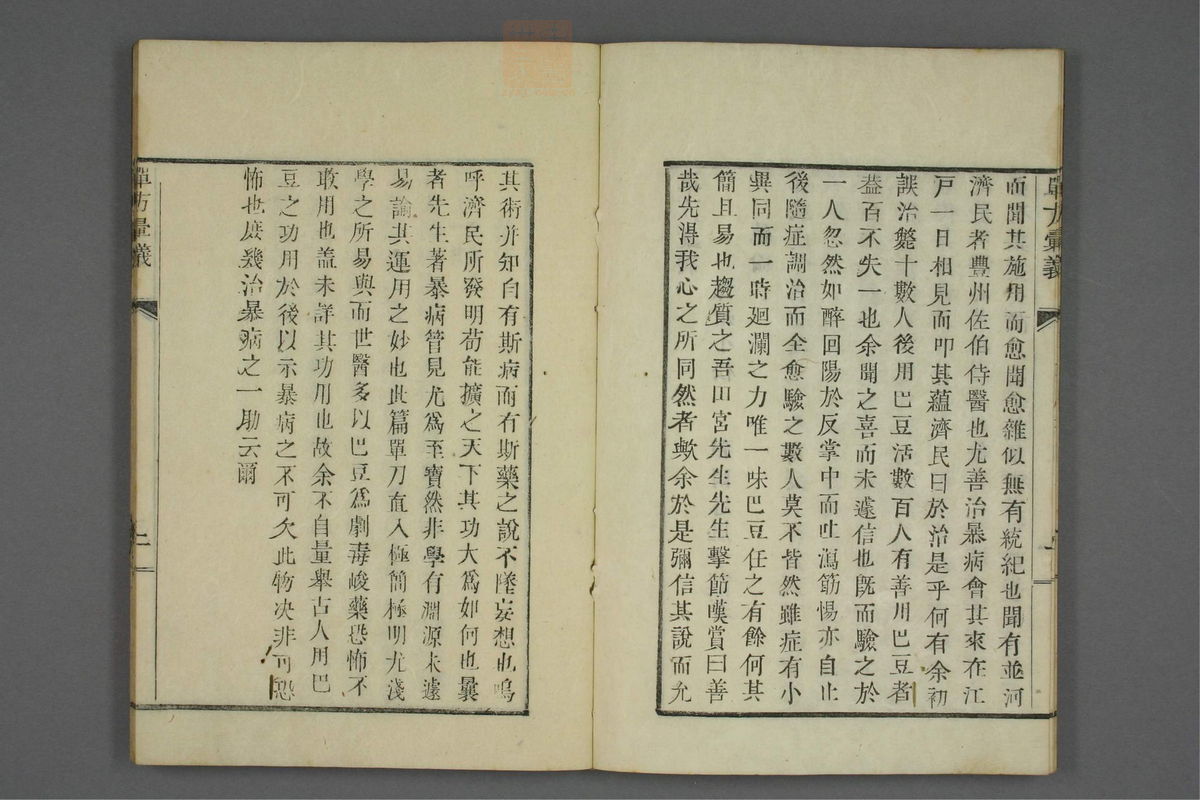 單方彙議
而聞其施用而愈聞愈雜似無有統紀也聞有並河
濟民者豊州佐伯侍醫也尤善治暴病會其來在江
戸一日相見而叩其蘊濟民曰於治是乎何有余初
誤治斃十數人後用巴豆活數百人有善用巴豆者
益百不失一也余聞之喜而未遽信也既而驗之於
一人忽然如醉回陽於反掌中而吐瀉筋惕亦自止
後隨症調治而全愈驗之數人莫不皆然雖症有小
異同而一時廻瀾之力唯一味巴豆任之有餘何其
簡且易也趨質之吾田宮先生先生擊節嘆賞曰善
哉先得我心之所同然者歟余於是彌信其說而允
其術并知自有斯病而有斯藥之說不墜妄想也嗚
呼濟民所發明苟能擴之天下其功大爲如何也曩
者先生著暴病管見尤爲至寶然非學有淵源未遽
易諭其運用之妙也此篇單刀直入極簡極明尤淺
學之所易與而世醫多以巴豆爲劇毒峻藥恐怖不
敢用也蓋未詳其功用也故余不自量舉古人用巴
豆之功用於後以示暴病之不可欠此物决非可恐
怖也庶幾治暴病之一助云爾
單方彙議
二